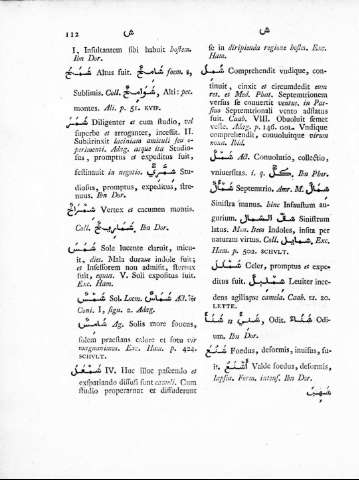 112
ش
ش
I, Insultantem sibi habuit hostem.
Ibn Dor.
شَمَخَ Altus fuit. شَامِخٌ foem. ة,
Sublimis. Coll. شَوَامِخُ, Alti: pec.
montes. Ali. p. 51.
شَمَّرَ Diligenter et cum studio, vel
superbe et arroganter, incessit. II.
Subitrinxit laciniam amiculi seu
perimenti. Adeg. atque ita Studio-
sus, promptus et expeditus fuit,
festinauit in negotio. شَمَّرِيٌّ Stu-
diosus, promptus, expeditus, stre-
nuus. Ibn Dor.
شِمْرَاخٌ Vertex et cacumen montis.
Coll. شَمَارِيخُ. Ibn Dor.
شَمَسَ Sole lucente claruit, micu-
it, dies. Mala durave indole fuit;
et Insessorem non admisit, sternax
fuit, equus. V. Soli expositus fuit.
Exc. Ham.
شَمْسٌ Sol. Locm. شَمَاسٌ
Cani. I, sign. 2. Adeg.
شَامِسٌ Ag. Solis more fouens,
solem praestans calore et fotu vir
magnanimus. Exc. Ham. p. 424.
SCHVLT.
شَمْعَلَ IV. Huc illuc pascendo et
exspatiando diffusi sunt cameli. Cum
studio properarunt et diffuderunt
se in diripienda regione hostes. Exc.
Ham.
شَمَلَ Comprehendit vndique, con-
tinuit, cinxit et circumdedit eum
res. et Mod. Phut. Septemtrionem
versus se conuertit ventus, in Pas-
siuo Septemtrionali vento adflatus
fuit. Caab. VIII. Obuoluit semet
veste. Adeg. p. 146. 601. Vndique
comprehendit, conuoluitque virum
noua. Ibid.
شَمْلٌ Act. Conuolutio, collectio,
vniuersitas. i. q. كُلٌّ. Ibn Phar.
شَمَالٌ Septemtrio. Amr. M. شِمَالٌ
Sinistra manus. hinc Infaustum au-
gurium. شِقُّ الشِّمَالِ Sinistrum
latus. Mon. Item Indoles, insita per
naturam virtus. Coll. شَمَايِلُ. Exc.
Ham. p. 502. SCHVLT.
شَمْلَلَ Celer, promptus et expe-
ditus fuit. شِمْلِيلٌ Leuiter ince-
dens agilisque camela. Caab. 12. 20.
LETTE.
شَنَأَ et شَنِئَ, Odit. شَنَآءٌ Odi-
um. Ibn Dor.
شَنُعَ Foedus, deformis, inuisus, fu-
it. أَشْنَعُ Valde foedus, deformis,
lapsus. Form. intens. Ibn Dor.
شَهْبٌ